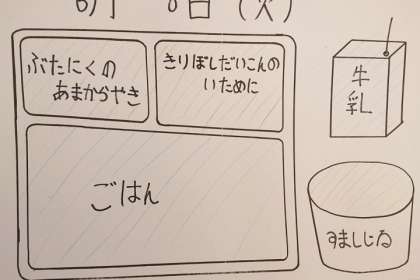 8日(火)
ぶたにくの
あまからやき
きりぼしだいこんの
いために
牛
乳
ごはん
すましじる